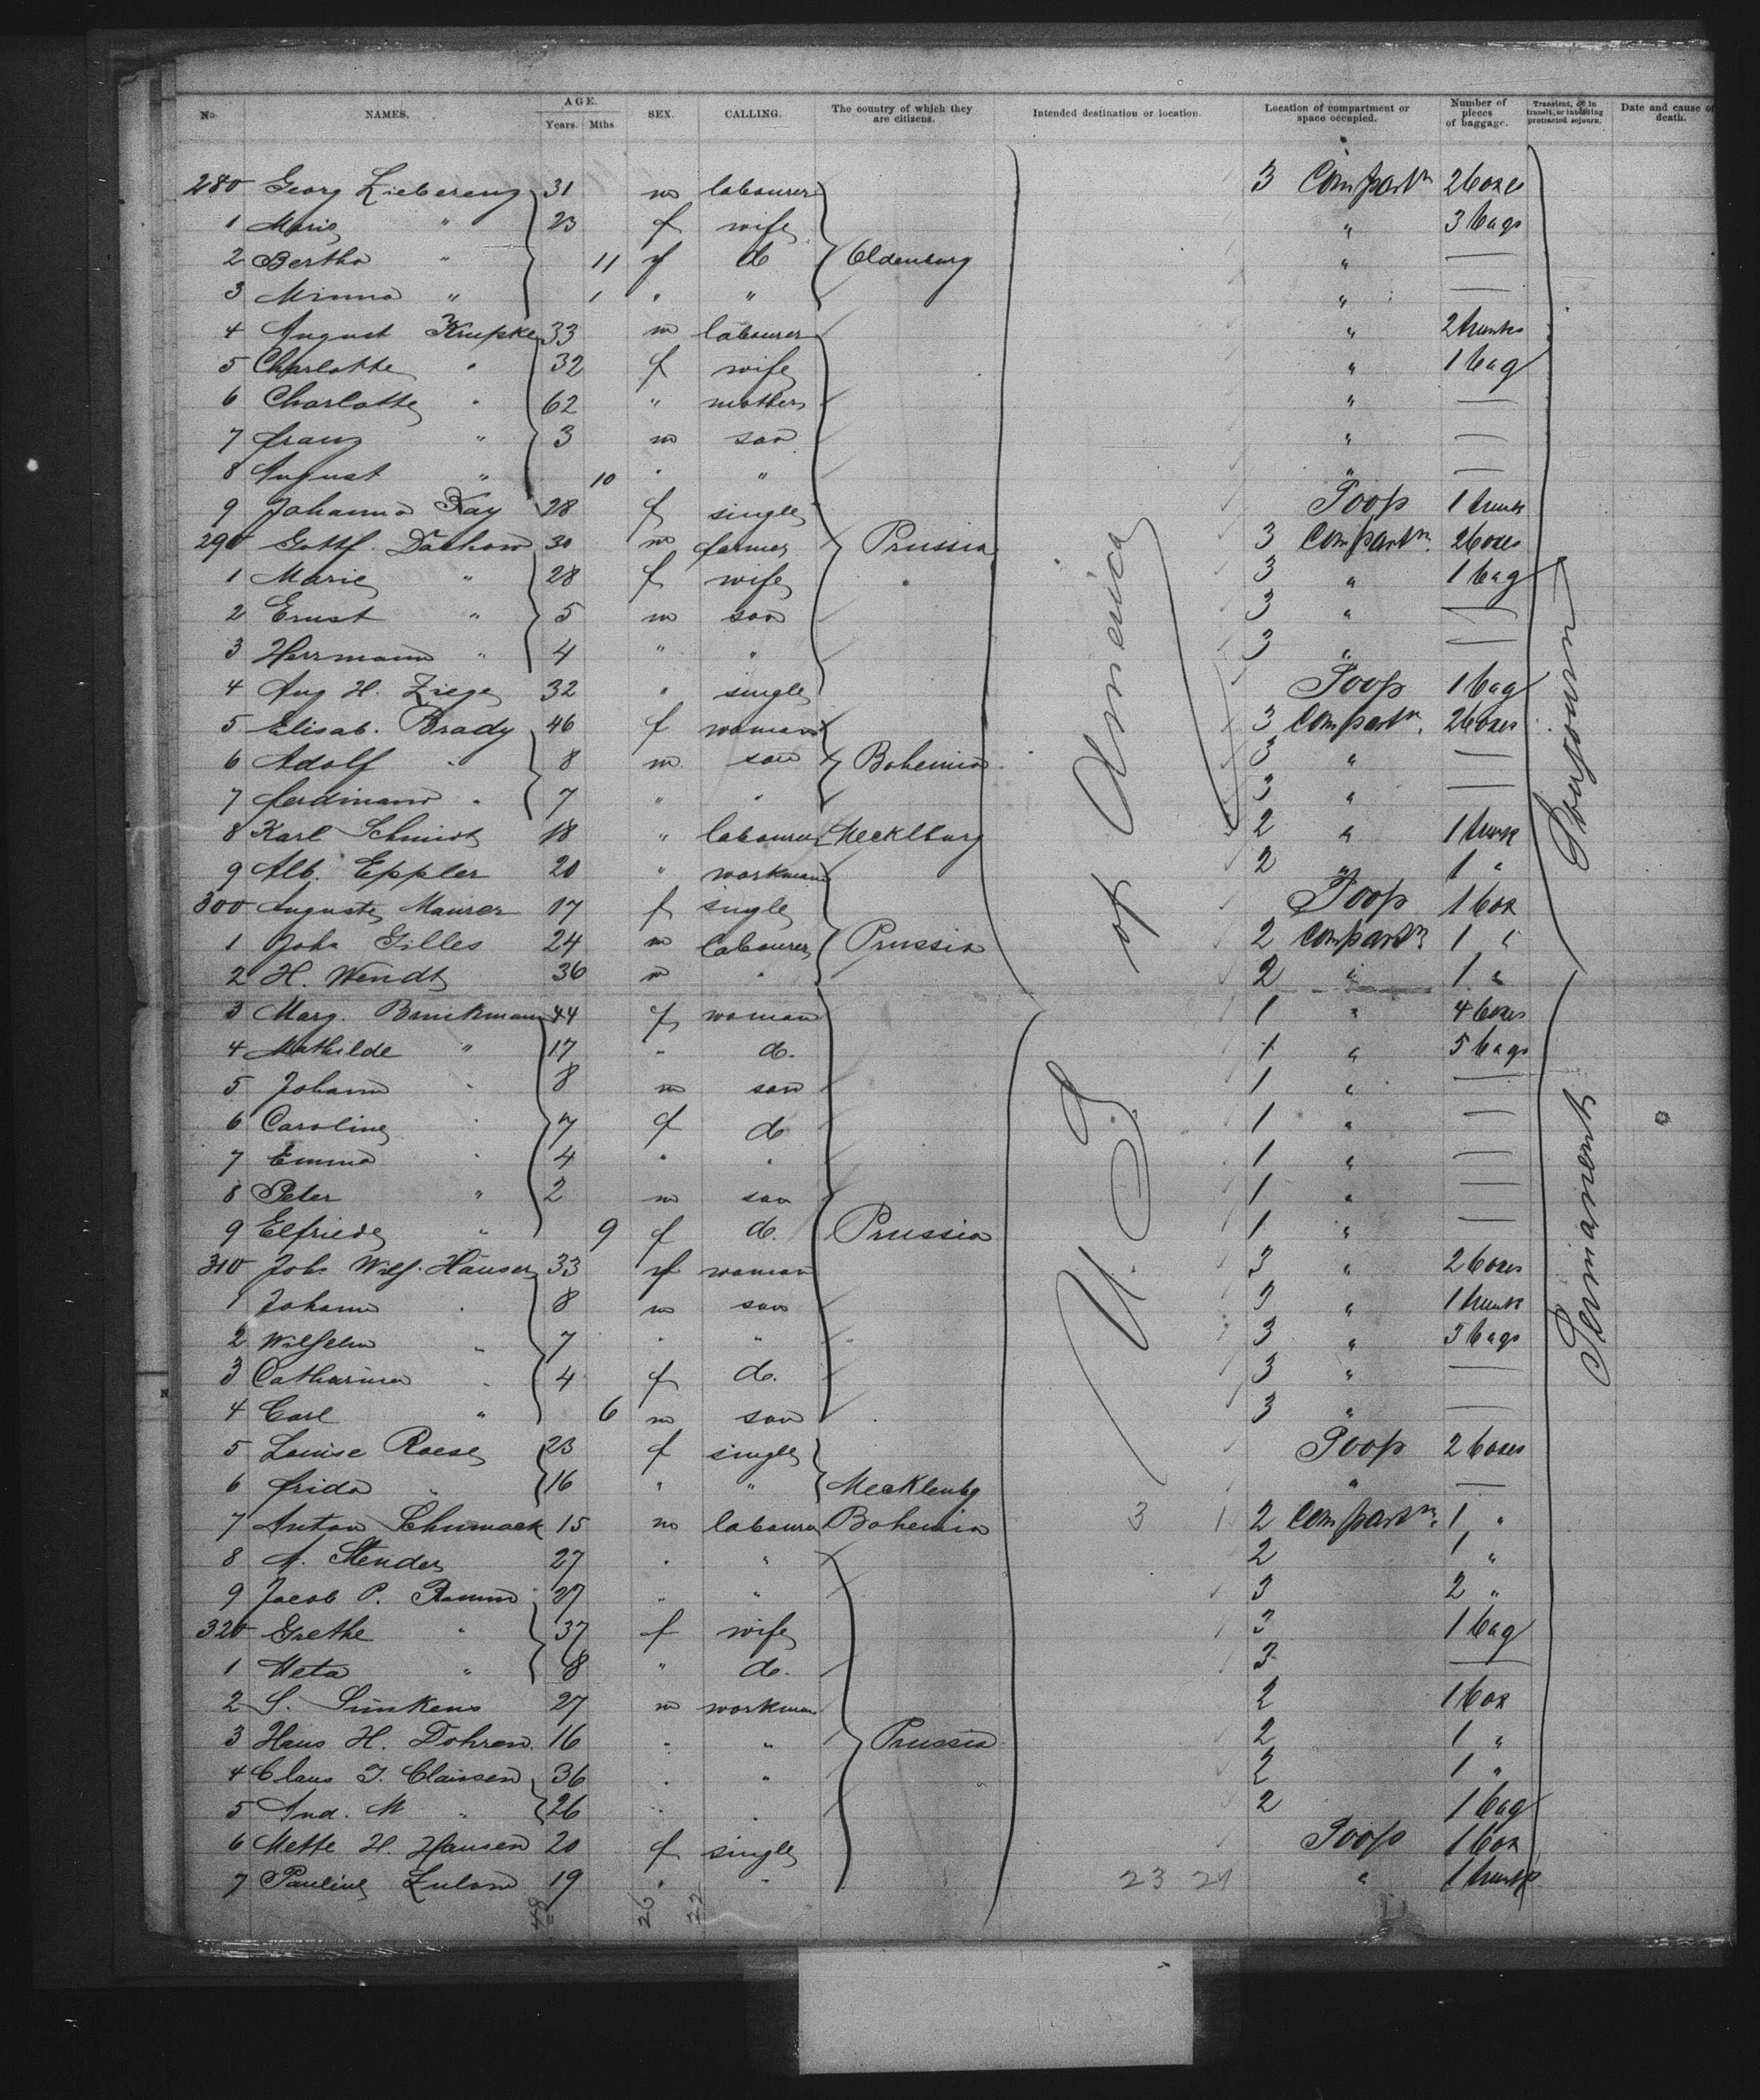 No. NAMES. AGE. Years. Mths SEX. CALLING. The country of which they are citizens. Intended destination or location Location of compartment or space occupied. Number of pieces of baggage. Transient, or in transit, or intending protracted sojourn. Date and cause of death.
280 Georg 31 m labourer 3 Compartm 2 boxes
1 Marie " 23 f wife " 3 bags
2 Bertha " 11 f do Oldenburg " —
3 Minna " 1 " " " —
4 August Krupke 33 m labourer " 2 trunks
5 Charlotte " 32 f wife " 1 bag
6 Charlotte " 62 " mother " —
7 Franz " 3 m son " —
8 August " 10 " " " —
9 Johanna Kay 28 f single Poop 1 trunk
290 Gottf. Dachow 30 m farmer Prussia 3 Compartm. 2 boxes
1 Marie " 28 f wife 3 " 1 bag
2 Ernst " 5 m son 3 " —
3 Herrmann " 4 " " 3 " —
4 Aug H. Ziege 32 " single Poop 1 bag
5 Elisab. Brady 46 f woman 3 Compartm. 2 boxes
6 Adolf " 8 m son Bohemia 3 " —
7 Ferdinand " 7 " " 3 " —
8 Karl Schmidt 18 " labourer Mecklburg 2 " 1 trunk
9 Alb. Eppler 20 " workman 2 " 1 "
300 Auguste Maurer 17 f single Poop 1 box
1 Joh. Gilles 24 m labourer Prussia 2 Compartm 1 "
2 H. Wendt 36 m " 2 " 1 "
3 Marg. Brinkmann 44 f woman 1 " 4 boxes
4 Mathilde " 17 " do. 1 " 5 bags
5 Johann " 8 m son 1 " —
6 Caroline " 7 f do 1 " —
7 Emma " 4 " " 1 " —
8 Peter " 2 m son 1 " —
9 Elfriede " 9 f do. Prussia 1 " —
310 Joh. Wilh. Hauser 33 f woman 3 " 2 boxes
1 Johann " 8 m son 3 " 1 trunk
2 Wilhelm " 7 " " 3 " 3 bags
3 Catharina " 4 f do. 3 " —
4 Carl " 6 m son 3 " —
5 Louise Roese 23 f single Poop 2 boxes
6 Frida " 16 " " Mecklenbg " —
7 Anton Schumack 15 m labourer Bohemia 3 1 2 Compartm. 1 "
8 A. Stender 27 " " 2 1 "
9 Jacob P. Ramm 37 " " 3 2 "
320 Grethe " 37 f wife 3 1 bag
1 Meta " 8 " do. 3 —
2 S. Sunkens 27 m workman 2 1 box
3 Hans H. Dohren 16 " " Prussia 2 1 "
4 Claus J. Claussen 36 " " 2 1 "
5 And. M " 26 " " 2 1 bag
6 Mette H. Hansen 20 f single Poop 1 box
7 Pauline 19 " " 23 24 " 1 trunk
48 26 22
U. S. of America
Soujourn
Permanent